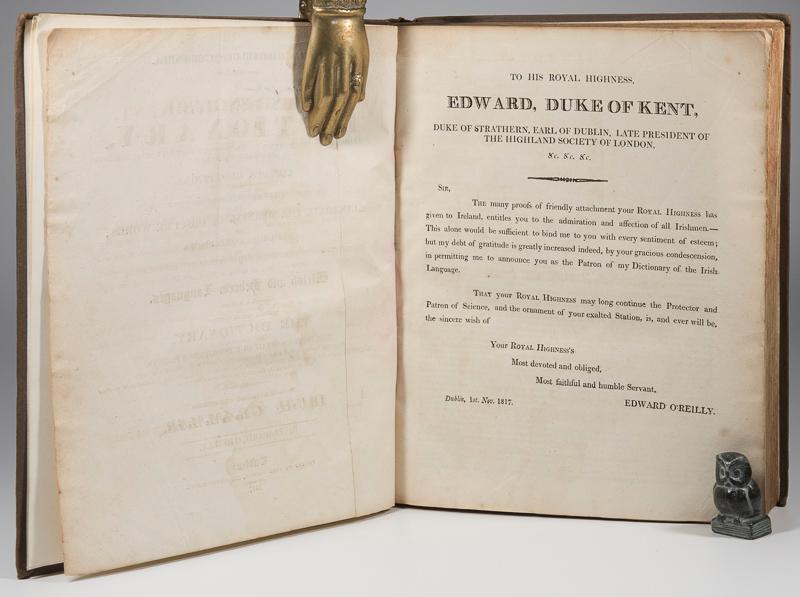 TO HIS ROYAL HIGHNESS,
EDWARD, DUKE OF KENT,
DUKE OF STRATHERN, EARL OF DUBLIN, LATE PRESIDENT OF
THE HIGHLAND SOCIETY OF LONDON,
&c. &c. &c.
SIR,
THE many proofs of friendly attachment your ROYAL HIGHNESS has
given to Ireland, entitles you to the admiration and affection of all Irishmen.—
This alone would be sufficient to bind me to you with every sentiment of esteem;
but my debt of gratitude is greatly increased indeed, by your gracious condescension,
in permitting me to announce you as the Patron of my Dictionary of the Irish
Language.
THAT your ROYAL HIGHNESS may long continue the Protector and
Patron of Science, and the ornament of your exalted Station, is, and ever will be,
the sincere wish of
Your ROYAL HIGHNESS's
Most devoted and obliged,
Most faithful and humble Servant,
EDWARD O'REILLY.
Dublin, 1st. Nov. 1817.